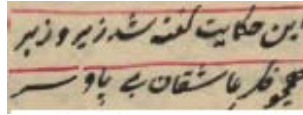 این حکایت گفته شد زیر و زبر
همچو فکر عاشقان بی پا و سر